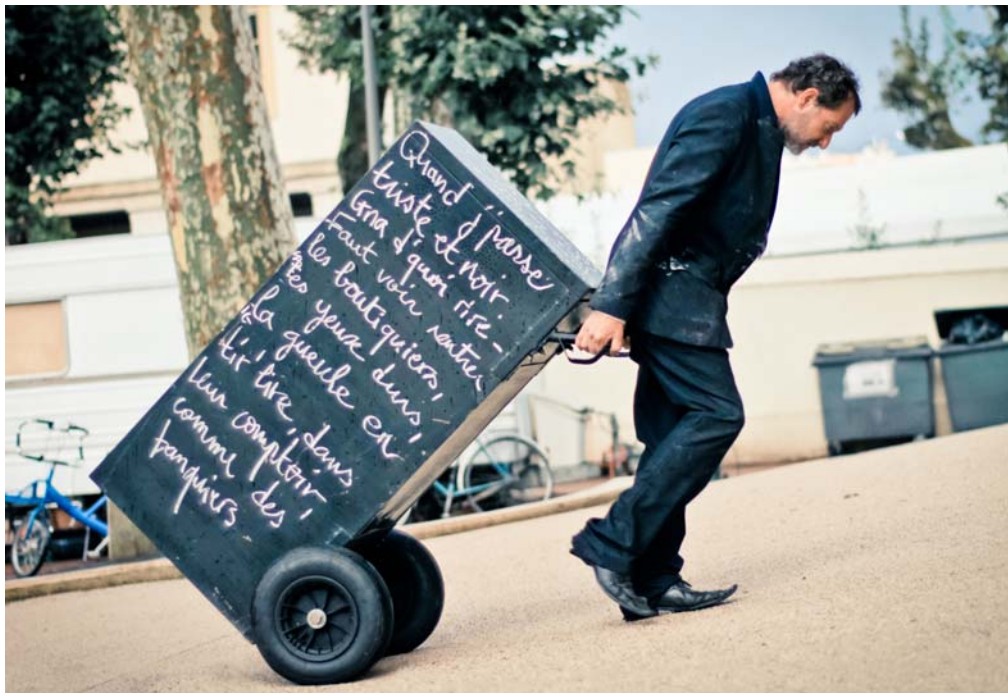 Quand j'passe
triste et noir
Gna d'quoi rire-
Faut voir rentrer
les boutiquiers,
les yeux durs,
la gueule en
tir'lire, dans
leur comptoir
comme des
banquiers